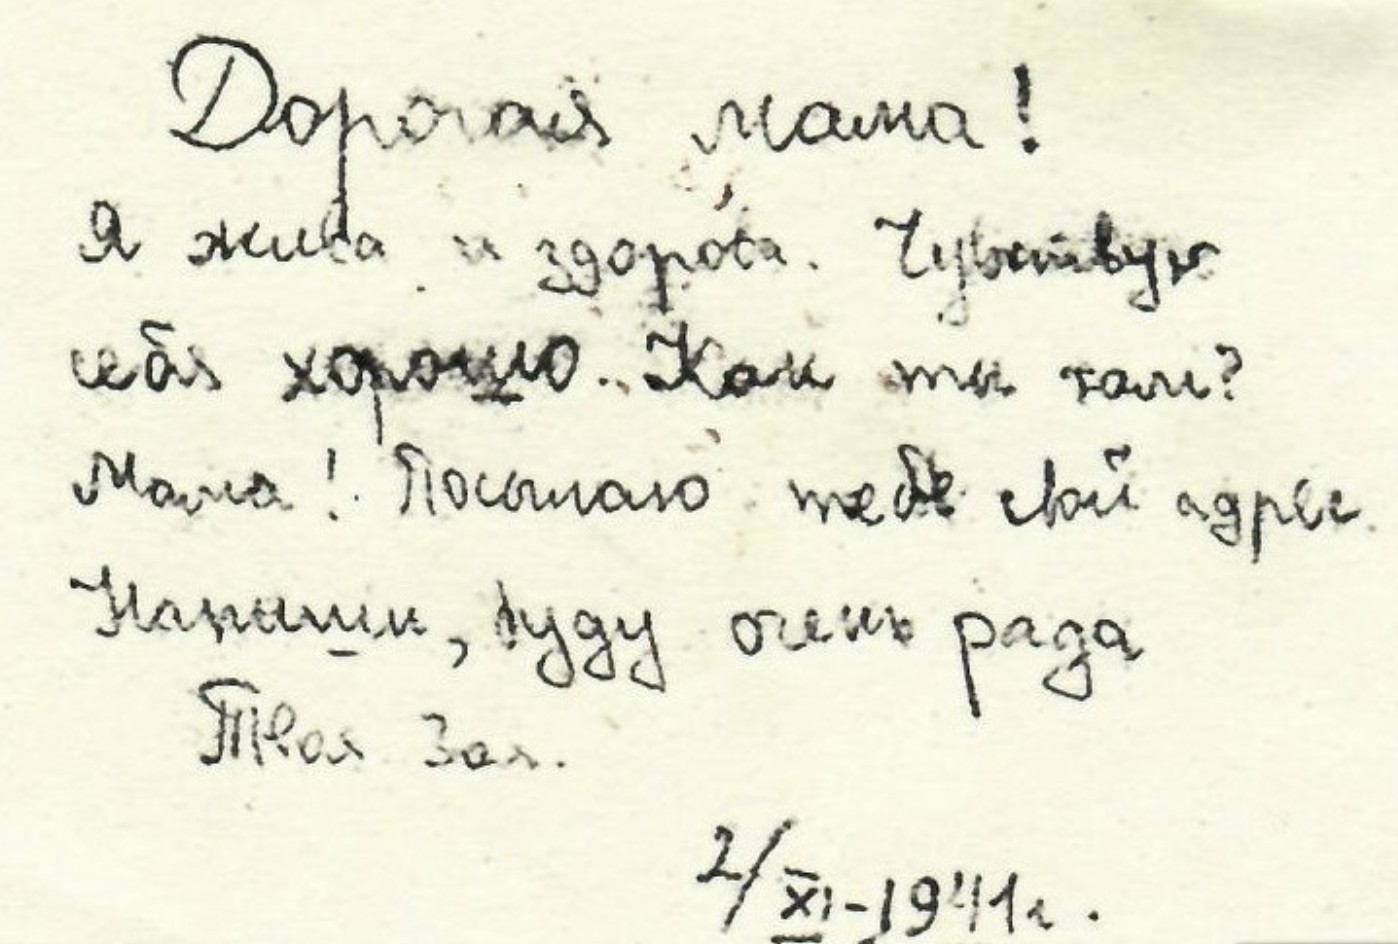 Дорогая мама!
Я жива и здорова. Чувствую
себя хорошо. Как ты там?
Мама! Посылаю тебе свой адрес.
Напиши, буду очень рада
Твоя Зоя.
2/XI-1941г.